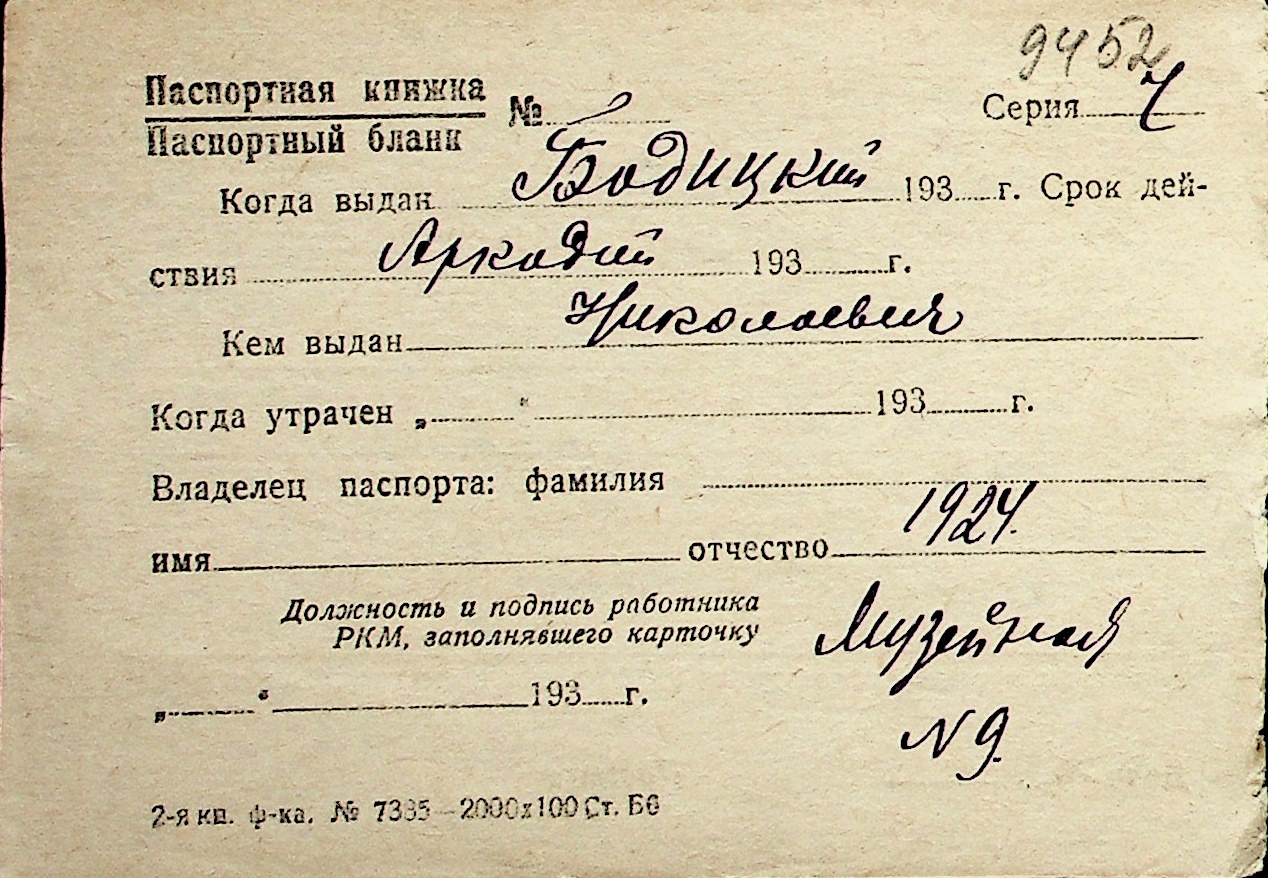 9452
Паспортная книжка
Паспортный бланк
№ Серия 7
Когда выдан Бодицкий 193 г. Срок дей-
ствия Аркадий 193 г.
Кем выдан Николаевич
Когда утрачен „ “ 193 г.
Владелец паспорта: фамилия
имя отчество 1924.
Должность и подпись работника
РКМ, заполнявшего карточку
Музейная
„ “ 193 г.
N 9.
2-я кн. ф-ка. № 7385—2000х100 Ст. Б6